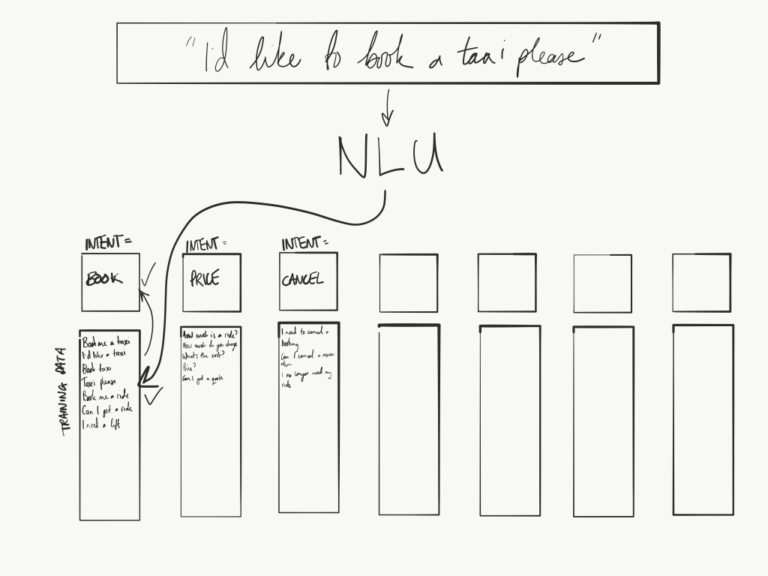 "I'd like to book a taxi please"
NLU
INTENT =
BOOK
INTENT =
PRICE
INTENT =
CANCEL
TRAINING DATA
Book me a taxi
I'd like a taxi
Book taxi
Taxi please
Book me a ride
Can I get a ride
I need a lift
How much is a ride?
How much do you charge
What's the cost?
Price?
Can I get a quote
I need to cancel a
booking
Can I cancel a
I no longer need my
ride